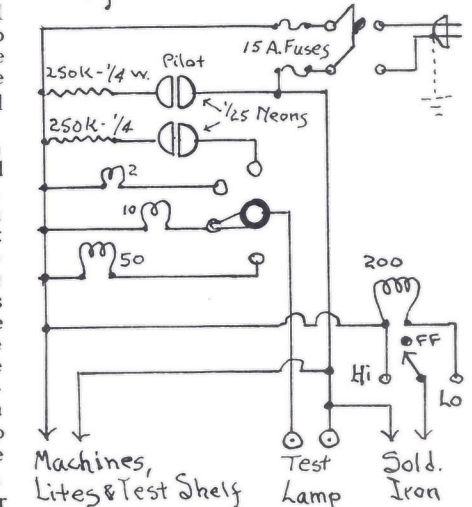 15 A. Fuses
Pilot
250K-¼ w.
1/25 Neons
250K-¼
2
10
50
200
FF
Hi
Lo
Machines,
Lites & Test Shelf
Test
Lamp
Sold.
Iron